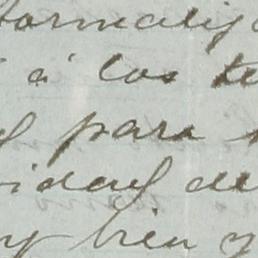 formaliz
á los te
para
idad de
y bien y